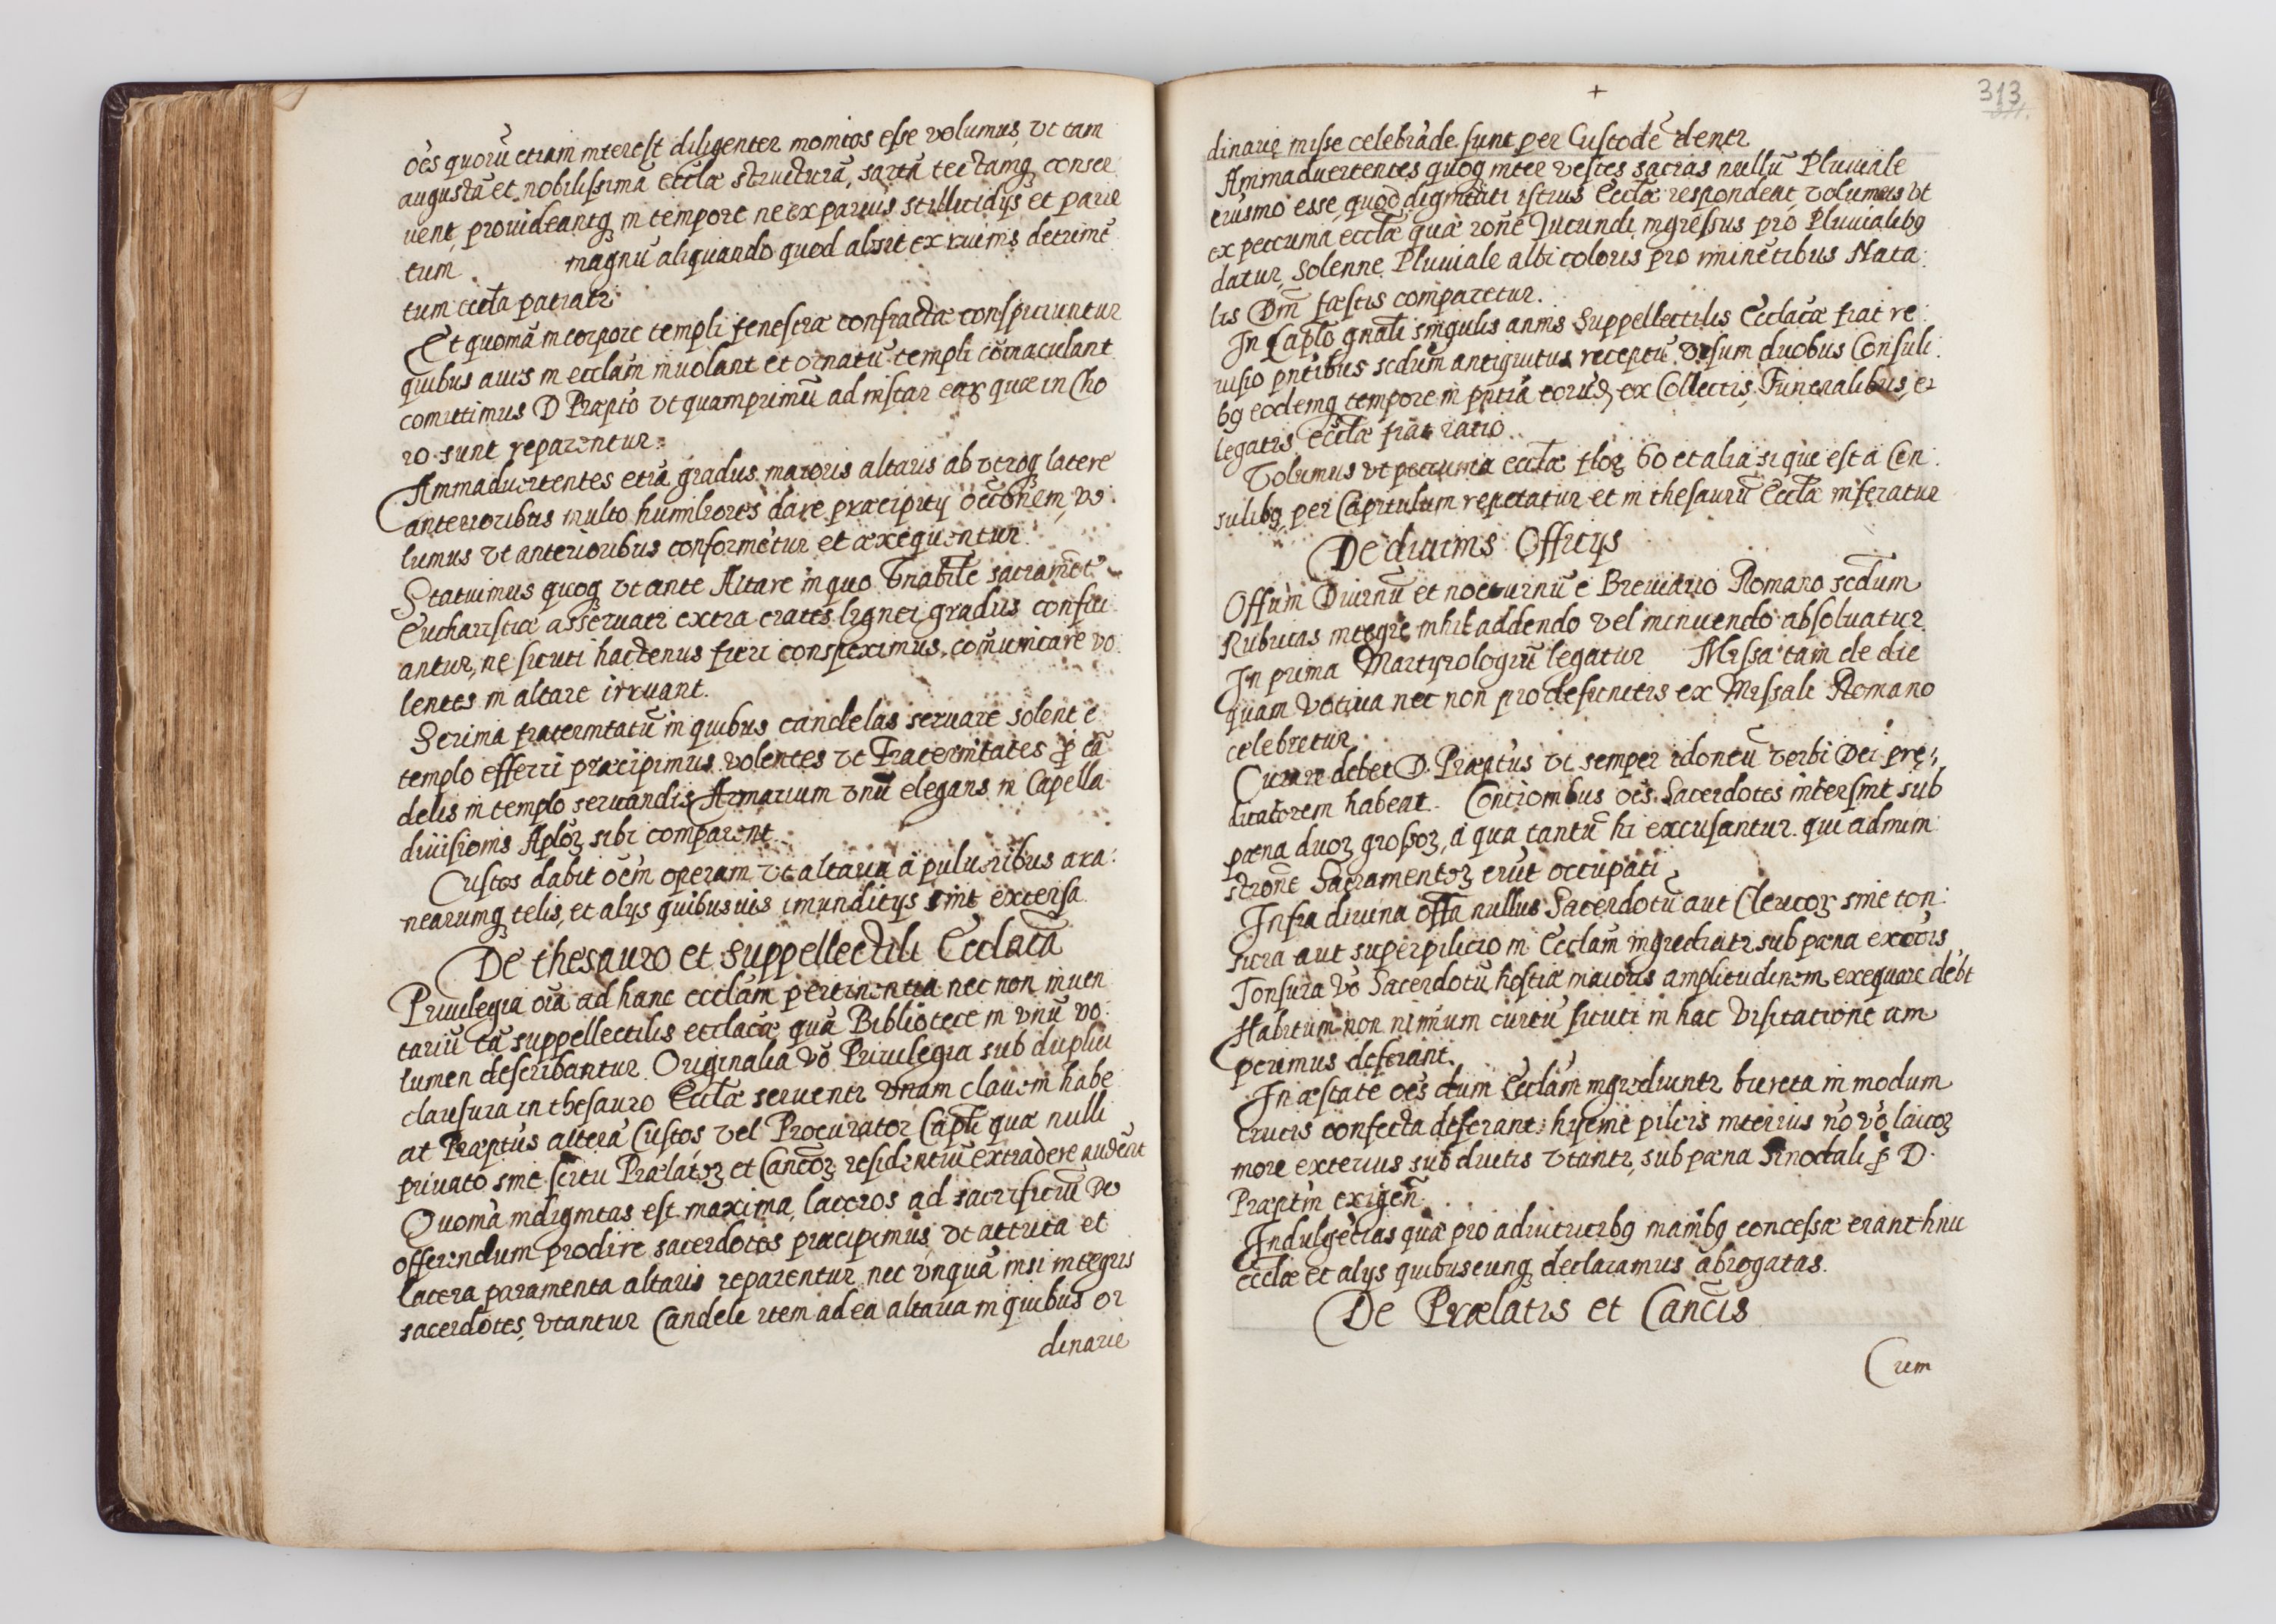 oēs quorū etiam interest diligenter monitos esse volumus, vt tam
augustā et nobilissimā Ecclæ structurā, sartā tectamq conser
uent, prouideantq in tempore ne ex paruis stillicidijs et parie
tum magnū aliquando quod absit ex ruinis detrimē
tum eccla patiatr
Et quoniā in corpore templi fenestræ confractæ conspiciuntur
quibus aues in ecclam inuolant et ornatū templi cōmaculant
comittimus D Præpto vt quamprimū ad instar eaꝝ quæ in Cho
ro sunt reparentur.
Animaduertentes etiā gradus maioris altaris ab vtroq latere
anterioribus multo humiliores dare præcipitij occōnem, vo:
lumus vt anterioribus conformētur et æxequentur.
Statuimus quoq vt ante Altare in quo Vnabile sacramēt
Eucharistiæ asseruatr extra crates lignei gradus confici
antur, ne sicuti hactenus fieri conspeximus, comunicare vo:
lentes in altare irruant.
Scrinia fraternitatū in quibus candelas seruare solent è
templo efferri præcipimus volentes vt Fraternitates ꝓ cā
delis in templo seruandis Armarium vnū elegans in Capella
diuisionis Aploꝝ sibi comparent.
Custos dabit oēm operam vt altaria à pulueribus ara:
nearumq telis, et alijs quibusuis imunditijs sint extersa.
De thesauro et suppellectili Ecclacā
Priuilegia oīa ad hanc ecclam pertinentia nec non inuen
tariū tā suppellectilis ecclacæ quā Bibliotece in vnū vo:
lumen describantur. Originalia vō Priuilegia sub duplici
clausura in thesauro Ecclæ seruentr vnam clauem habe
at Præptus alterā Custos vel Procurator Capli quæ nulli
priuato sine scitu Prælatoꝝ et Cancoꝝ residentiū extradere audeāt
Quoniā indignitas est maxima, laceros ad sacrificiū Deo
offerendum prodire sacerdotes præcipimus, vt attrita et
lacera paramenta altaris reparentur nec vnquā nisi integris
sacerdotes, vtantur Candele item ad ea altaria in quibus or
dinarie
+
313
dinarie misse celebrāde sunt per Custodē dentr
Animaduertentes quoq inter vestes sacras nullū Pluuiale
eiusmō esse quod dignitati istius Ecclæ respondeat, volumus vt
ex peccunia ecclæ quæ rone Iucundi ingressus pro Pluuialibq
datur, Solenne Pluuiale albi coloris pro iminētibus Nata:
lis Dnī fæstis comparetur.
In Caplo gnali singulis annis Suppellectilis Ecclacæ fiat re:
uisio pntibus scdum antiquitus receptū vsum duobus Consuli:
bq eodemq tempore in pntia eorūd, ex Collectis, Funeralibus, et
legatis Ecclæ fiat ratio.
Volumus vt peccunia ecclæ floꝝ 60 et alia si que est à Con:
sulibq per Capitulum repetatur et in thesaurū Ecclæ inferatur
De diuinis Officijs
Offum Diurnū et nocturnū è Breuiario Romano scdum
Rubricas integrè nihil addendo vel minuendo absoluatur.
In prima Martyrologiū legatur Missa tam de die
quam votiua nec non pro defunctis ex Missali Romano
celebretur.
Curare debet D. Præptus vt semper idoneū verbi Dei prę:
dicatorem habeat. Concionibus oēs Sacerdotes intersint sub
pæna duoꝝ grossoꝝ, à qua tantū hi excusantur qui admini:
strone Sacramentoꝝ erūt occupati.
Infra diuina offa nullus Sacerdotū aut Clericoꝝ sine ton:
sura aut superpilicio in Ecclam ingrediatr sub pæna excōis
Tonsura vō Sacerdotū hostiæ maioris amplitudinem exequare debt
Habitum non nimium curtū sicuti in hac Visitatione am
perimus deferant.
In æstate oēs dum Ecclam ingrediuntr bireta in modum
crucis confecta deferant, hijeme pileis interius nō vō laicoꝝ
more exterius subductis vtantr, sub pæna Sinodali ꝓ D.
Præptm exigen.
Indulgētias quæ pro adiutricibq manibq concessæ erant huic
ecclæ et alijs quibuscunq declaramus abrogatas.
De Prælatis et Cancis
Cum